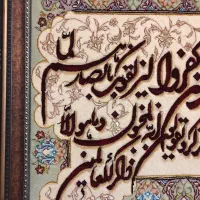 كفروا ليزلقونك بابصارهم لما
ويقولون إنه لمجنون وما هو الا
ذكر للعالمين